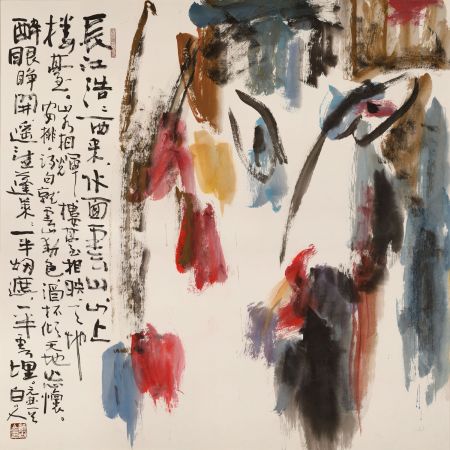 長江浩〻西来.水面雲山山上
楼臺.山水相輝樓臺相映天与
安排.詩句就雲山動色酒杯傾天地忘懷。
醉眼睁開遥望蓬莱.一半烟遮.一半雲埋.
白人